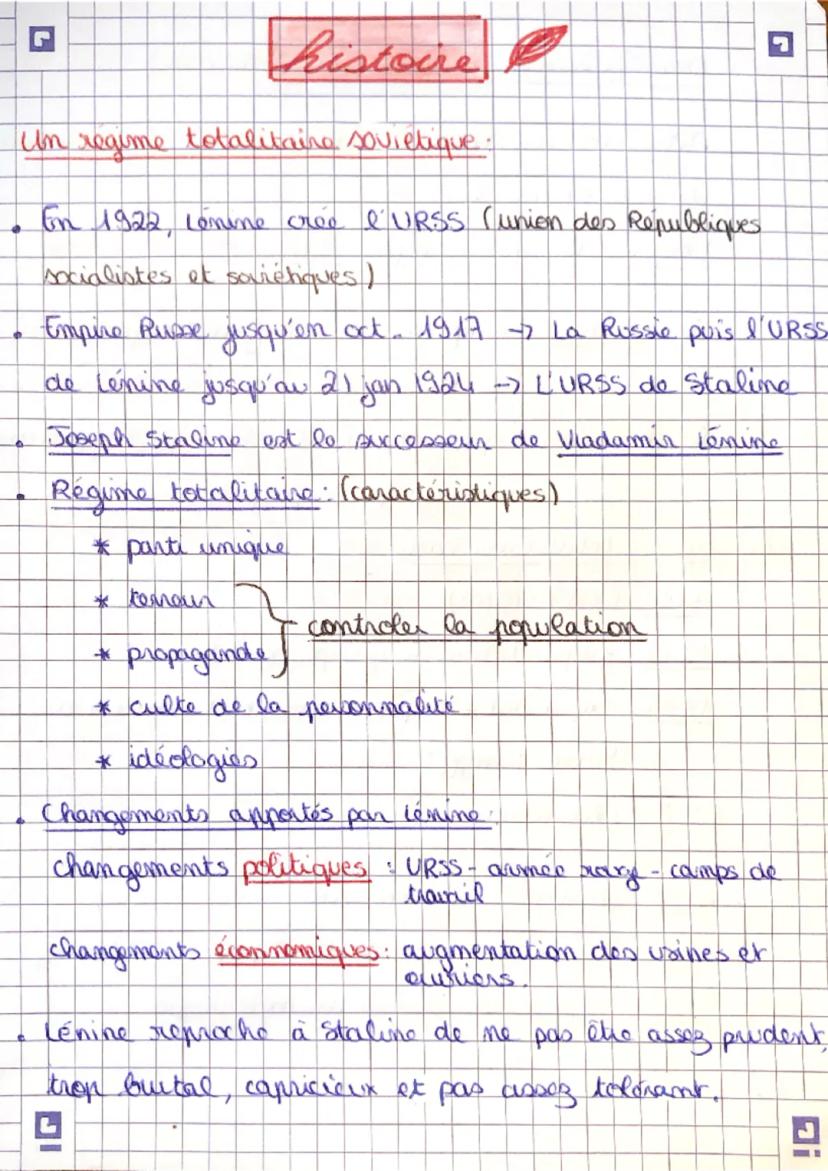 histoire
Un régime totalitaire soviétique :
• En 1922, Lénine crée l'URSS (union des Républiques
socialistes et soviétiques)
• Empire Russe jusqu'en oct. 1917 → La Russie puis l'URSS
de Lénine jusqu'au 21 jan 1924 → L'URSS de Staline
• Joseph Staline est le successeur de Vladamir Lénine
• Régime totalitaire : (caractéristiques)
* parti unique
* terreur
* propagande
controler la population
* culte de la personnalité
* idéologies
• Changements apportés par Lénine :
changements politiques : URSS - armée - camps de
travail
changements économmiques : augmentation des usines et
ouvriers.
• Lénine reproche à Staline de ne pas être assez prudent,
trop brutal, capricieux et pas assez tolérant.